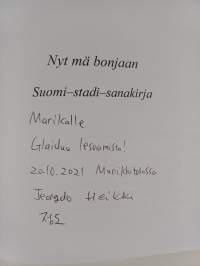 Nyt mä bonjaan
Suomi–stadi–sanakirja
Marikalle
Glaidua lesaamista!
20.10.2021 Marikkitalossa
Jeongdo Heikki